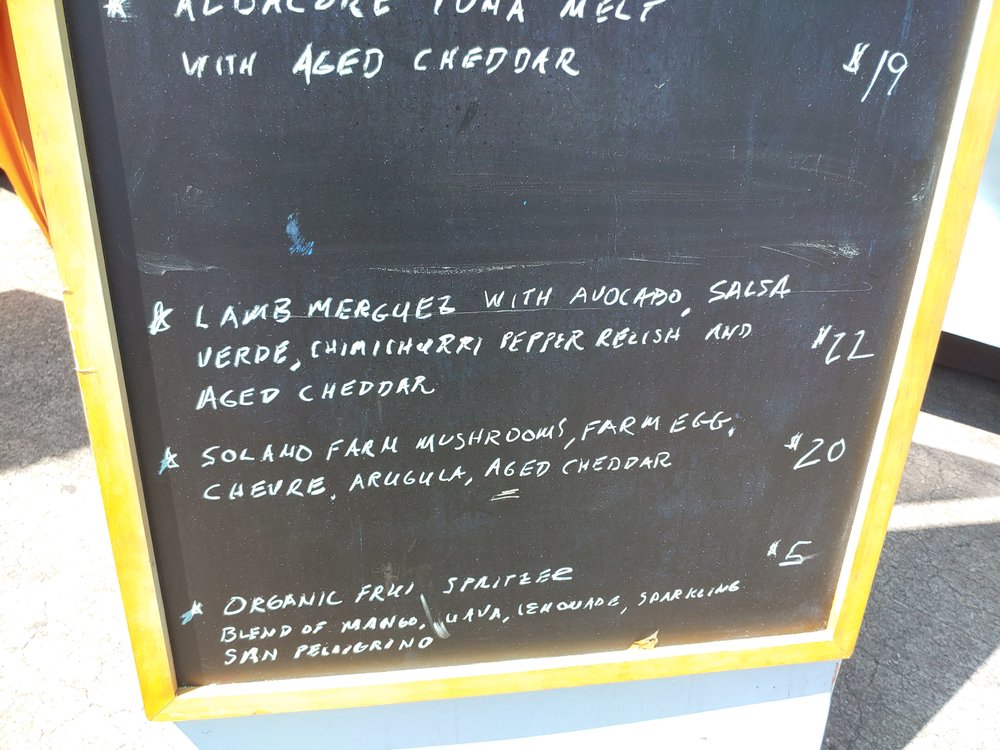 ALBACORE TUNA MELT
WITH AGED CHEDDAR $19
LAMB MERGUEZ WITH AVOCADO, SALSA
VERDE, CHIMICHURRI PEPPER RELISH AND $22
AGED CHEDDAR
SOLANO FARM MUSHROOMS, FARM EGG,
CHEVRE, ARUGULA, AGED CHEDDAR $20
$5
ORGANIC FRUI SPRITZER
BLEND OF MANGO, UAVA, LEMONADE, SPARKLING
SAN PELLIGRINO